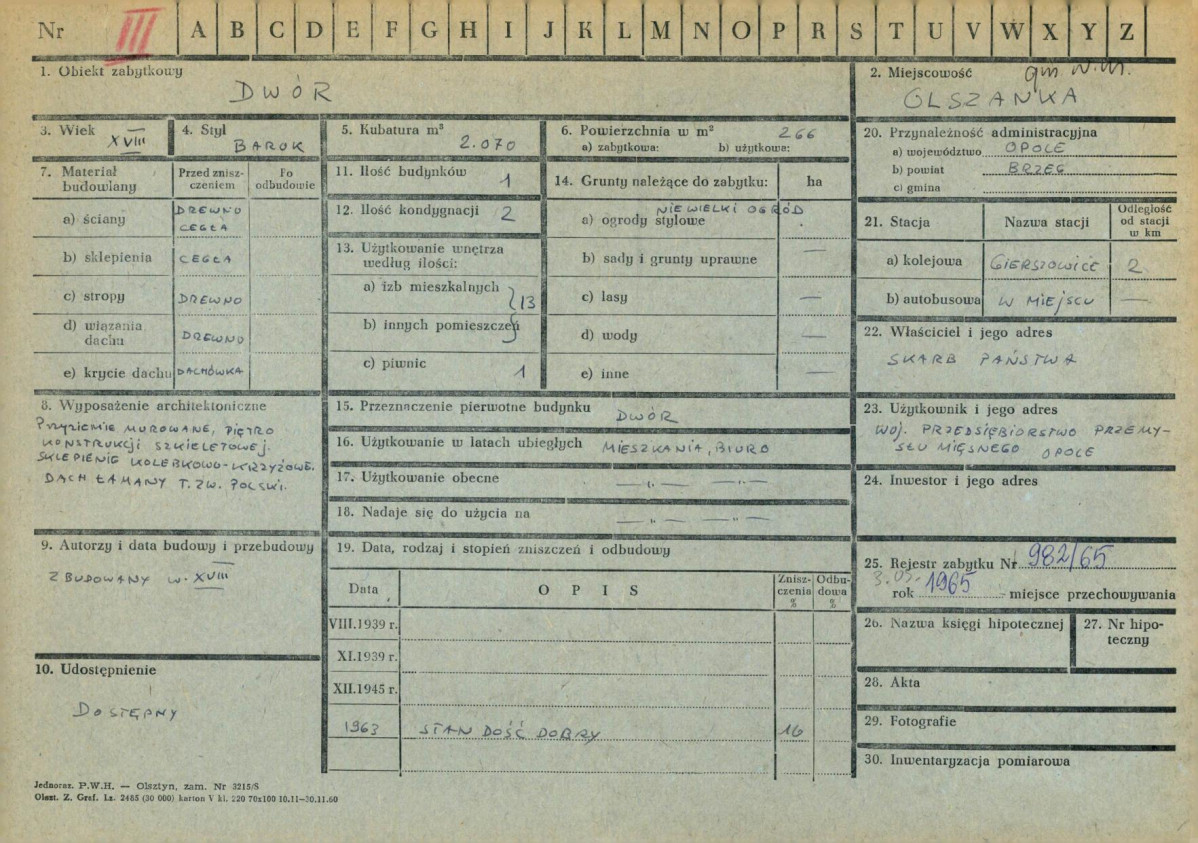 Nr III A B C D E F G H I J K L M N O P R S T U V W X Y Z
1. Obiekt zabytkowy
DWÓR
2. Miejscowość gm. N.M.
OLSZANKA
3. Wiek
XVIII
4. Styl
BAROK
5. Kubatura m³
2.070
6. Powierzchnia w m² 266
a) zabytkowa: b) użytkowa:
7. Materiał budowlany
Przed znisz-
czeniem
Po
odbudowie
a) ściany DREWNO
CEGŁA
b) sklepienia CEGŁA
c) stropy DREWNO
d) wiązania
dachu DREWNO
e) krycie dachu DACHÓWKA
8. Wyposażenie architektoniczne
PRZYZIEMIE MUROWANE, PIĘTRO
KONSTRUKCJI SZKIELETOWEJ.
SKLEPIENIE KOLEBKOWO-KRZYŻOWE.
DACH ŁAMANY T. ZW. POLSKI.
9. Autorzy i data budowy i przebudowy
ZBUDOWANY W. XVIII
10. Udostępnienie
DOSTĘPNY
11. Ilość budynków 1
12. Ilość kondygnacji 2
13. Użytkowanie wnętrza
według ilości:
a) izb mieszkalnych
b) innych pomieszczeń } 13
c) piwnic 1
14. Grunty należące do zabytku: ha
NIEWIELKI OGRÓD
a) ogrody stylowe
b) sady i grunty uprawne —
c) lasy —
d) wody —
e) inne —
15. Przeznaczenie pierwotne budynku DWÓR
16. Użytkowanie w latach ubiegłych MIESZKANIA, BIURO
17. Użytkowanie obecne —„— —„—
18. Nadaje się do użycia na —„— —„—
19. Data, rodzaj i stopień zniszczeń i odbudowy
Data OPIS Znisz-
czenia
% Odbu-
dowa
%
VIII.1939 r.
XI.1939 r.
XII.1945 r.
1963 STAN DOŚĆ DOBRY 16
20. Przynależność administracyjna
a) województwo OPOLE
b) powiat BRZEG
c) gmina
21. Stacja Nazwa stacji Odległość
od stacji
w km
a) kolejowa GIERSZOWICE 2
b) autobusowa W MIEJSCU —
22. Właściciel i jego adres
SKARB PAŃSTWA
23. Użytkownik i jego adres
WOJ. PRZEDSIĘBIORSTWO PRZEMY-
SŁU MIĘSNEGO OPOLE
24. Inwestor i jego adres
25. Rejestr zabytku Nr 982/65
3.05.
rok 1965 - miejsce przechowywania
26. Nazwa księgi hipotecznej
27. Nr hipo-
teczny
28. Akta
29. Fotografie
30. Inwentaryzacja pomiarowa
Jednoraz. P.W.H. — Olsztyn, zam. Nr 3215/S
Olszt. Z. Graf. Lz. 2465 (30 000) karton V kl. 220 70x100 10.11—30.11.60